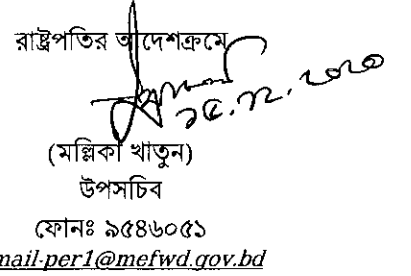 রাষ্ট্রপতির আদেশক্রমে
১৫.১২.২০২০
(মল্লিকা খাতুন)
উপসচিব
ফোনঃ ৯৫৪৬০৫১
mail-per1@mefwd.gov.bd